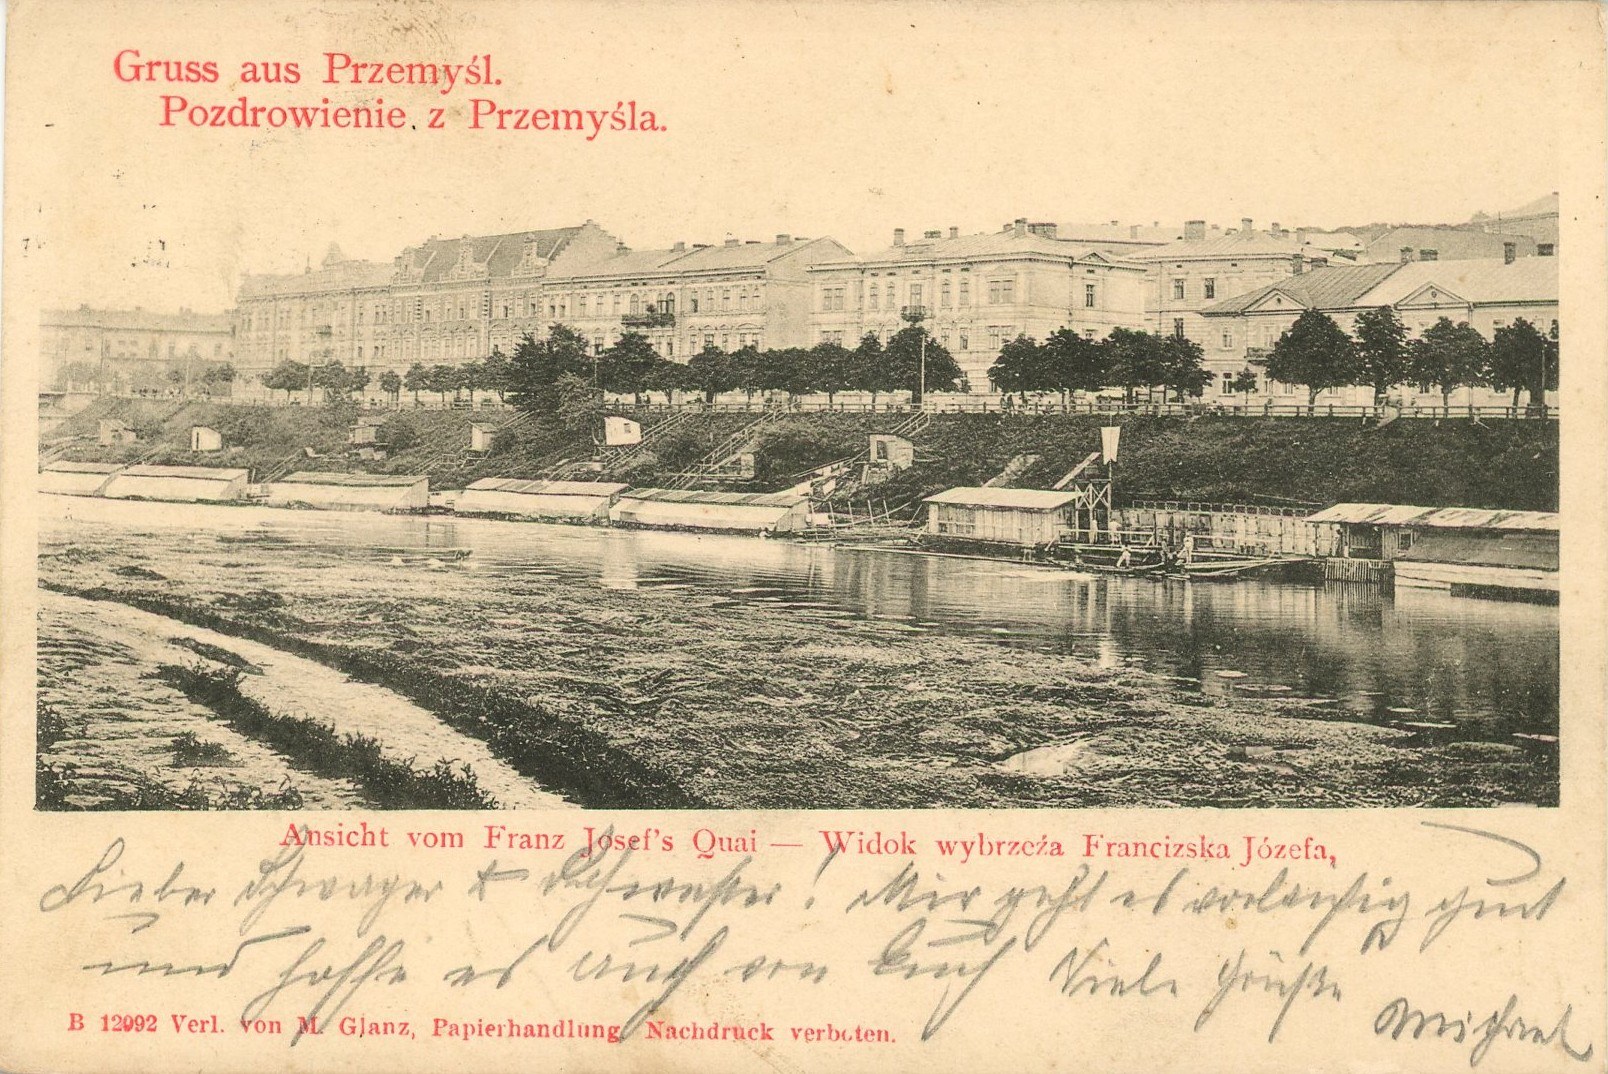 Gruss aus Przemyśl.
Pozdrowienie z Przemyśla.
Ansicht vom Franz Josef's Quai — Widok wybrzeźa Francizska Józefa,
Lieber Schwager & Schwester! Mir geht es vorläufig gut
und hoffe es auch von Euch Viele Grüße
Michael
B 12092 Verl. von M. Glanz, Papierhandlung Nachdruck verboten.